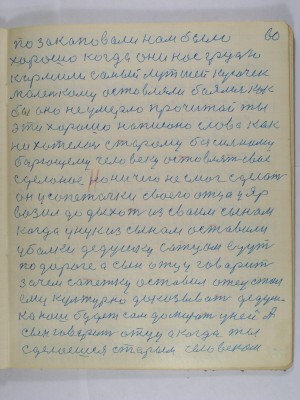 60
позакаповали нам было
хорошо когда они нас грудю
кормили самый лутший кусочек
маленкому оставляли баялис как
бы оно не умерло прочитай ты
эти хорошо написано слова как
ни хотелос старому
человеку оставлят свае
сделоное но ничего не смог сделат
он у отца у яр
вазил до дыхот из сваим сыном
когда унук из сыном оставили
у балки дедушку сатцом едут
по дороге а сын отцу говорит
зачем сапетку оставил отец стал
ему културно доказыват дедуш-
ка наш будет сам у ней а
сын говорит отцу а когда ты
сделаешся старым человеком